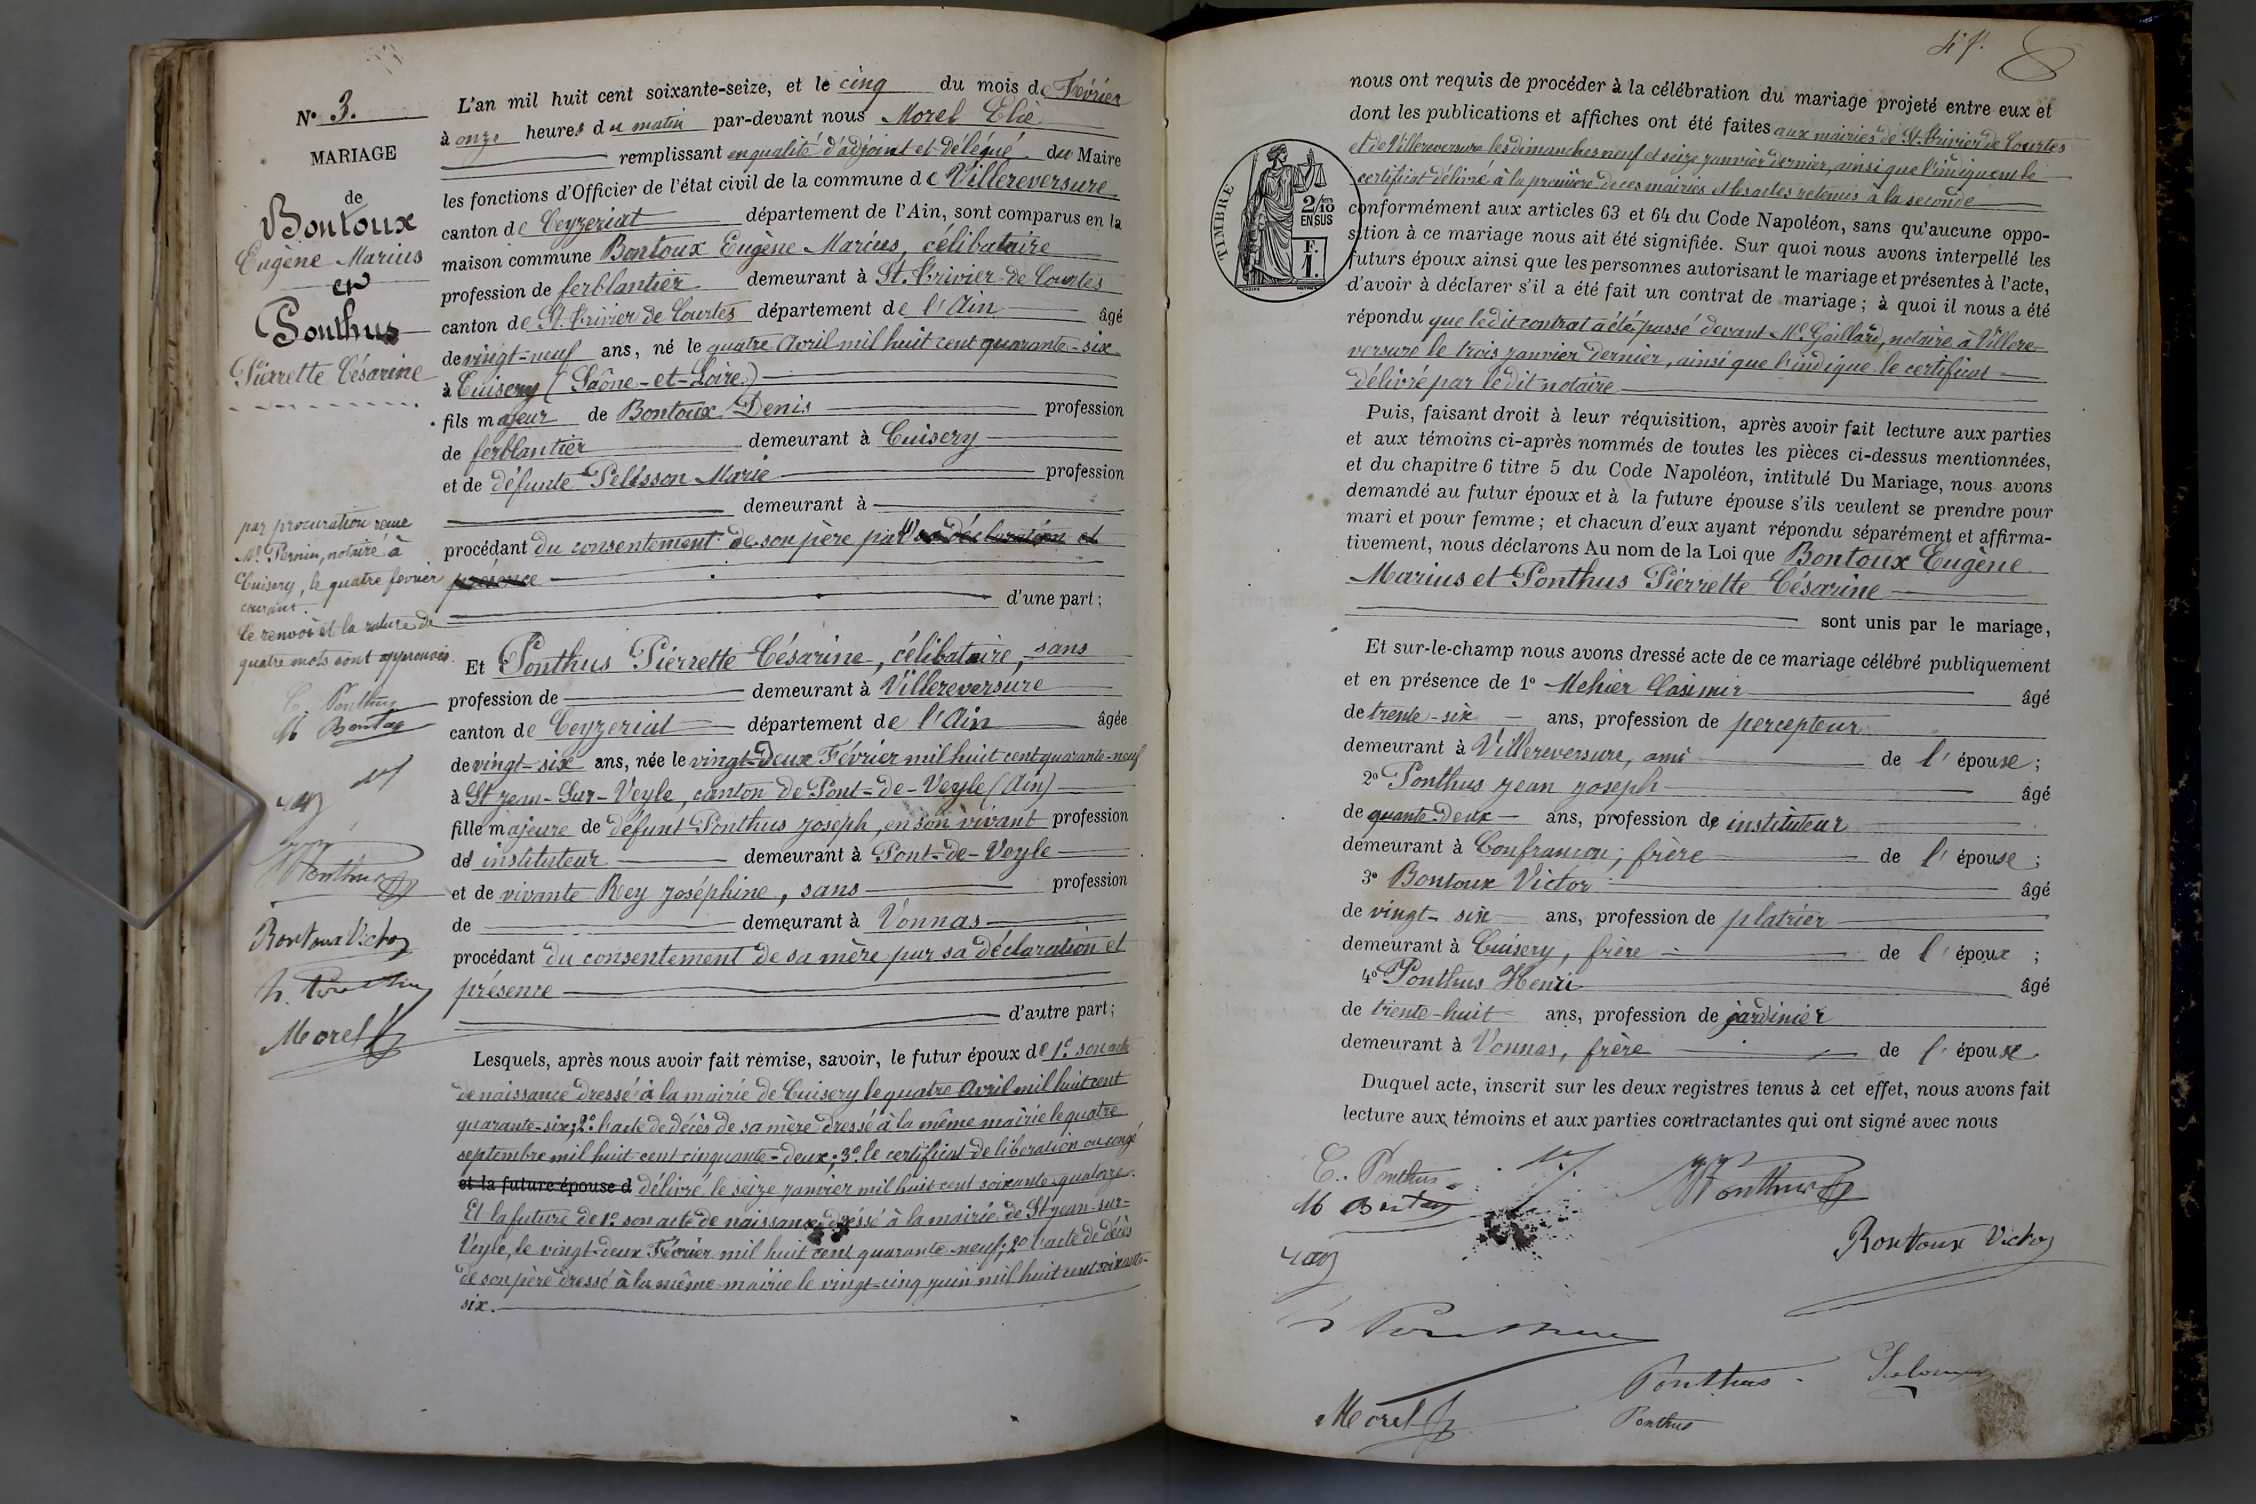 N° 3.
MARIAGE
de
Bontoux
Eugène Marius
et
Ponthus
Pierrette Césarine
par procuration reçue
Me Perrin, notaire à
Cuisery, le quatre février
courant.
Le renvoi et la rature de
quatre mots sont approuvés.
C. Ponthus
M Bontoux
Ponthus
Bontoux Victor
h. Ponthus
Morel
L'an mil huit cent soixante-seize, et le cinq du mois de Février
à onze heures du matin par-devant nous Morel Elie
remplissant en qualité d'adjoint et délégué du Maire
les fonctions d'Officier de l'état civil de la commune de Villereversure
canton de Ceyzeriat département de l'Ain, sont comparus en la
maison commune Bontoux Eugène Marius, célibataire
profession de ferblantier demeurant à St. Trivier-de Courtes
canton de St. Trivier de Courtes département de l'Ain âgé
de vingt-neuf ans, né le quatre Avril mil huit cent quarante-six
à Cuisery (Saône-et-Loire)
fils majeur de Bontoux Denis profession
de ferblantier demeurant à Cuisery
et de défunte Pelisson Marie profession
demeurant à
procédant du consentement de son père par (1) sa déclaration et
présence
d'une part;
Et Ponthus Pierrette Césarine, célibataire, sans
profession de demeurant à Villereversure
canton de Ceyzeriat département de l'Ain âgée
de vingt-six ans, née le vingt-deux Février mil huit cent quarante-neuf
à St Jean-Sur-Veyle, canton de Pont-de-Veyle (Ain)
fille majeure de défunt Ponthus Joseph, en son vivant profession
d' instituteur demeurant à Pont-de-Veyle
et de vivante Rey Joséphine, sans profession
de demeurant à Vonnas
procédant du consentement de sa mère par sa déclaration et
présence
d'autre part;
Lesquels, après nous avoir fait remise, savoir, le futur époux de 1° son acte
de naissance dressé à la mairie de Cuisery le quatre Avril mil huit cent
quarante-six; 2° l'acte de décès de sa mère dressé à la même mairie le quatre
septembre mil huit cent cinquante-deux; 3° le certificat de libération ou congé
et la future épouse d délivré le seize janvier mil huit cent soixante-quatorze.
Et la future de 1° son acte de naissance dressé à la mairie de St Jean-sur-
Veyle, le vingt-deux Février mil huit cent quarante-neuf; 2° l'acte de décès
de son père dressé à la même mairie le vingt-cinq juin mil huit cent soixante-
six.
47.
nous ont requis de procéder à la célébration du mariage projeté entre eux et
dont les publications et affiches ont été faites aux mairies de St. Trivier de Courtes
et de Villereversure les dimanches neuf et seize janvier dernier, ainsi que l'indiquent le
certificat délivré à la première de ces mairies et les actes retenus à la seconde
TIMBRE
2/10 EN SUS
F. 1.
conformément aux articles 63 et 64 du Code Napoléon, sans qu'aucune oppo-
sition à ce mariage nous ait été signifiée. Sur quoi nous avons interpellé les
futurs époux ainsi que les personnes autorisant le mariage et présentes à l'acte,
d'avoir à déclarer s'il a été fait un contrat de mariage; à quoi il nous a été
répondu que ledit contrat a été passé devant Me Gaillard, notaire à Villere-
versure le trois janvier dernier, ainsi que l'indique le certificat
délivré par ledit notaire
Puis, faisant droit à leur réquisition, après avoir fait lecture aux parties
et aux témoins ci-après nommés de toutes les pièces ci-dessus mentionnées,
et du chapitre 6 titre 5 du Code Napoléon, intitulé Du Mariage, nous avons
demandé au futur époux et à la future épouse s'ils veulent se prendre pour
mari et pour femme; et chacun d'eux ayant répondu séparément et affirma-
tivement, nous déclarons Au nom de la Loi que Bontoux Eugène
Marius et Ponthus Pierrette Césarine
sont unis par le mariage,
Et sur-le-champ nous avons dressé acte de ce mariage célébré publiquement
et en présence de 1° Mehier Casimir âgé
de trente-six ans, profession de percepteur
demeurant à Villereversure, ami de l'épouse;
2° Ponthus Jean Joseph âgé
de quante-deux ans, profession de instituteur
demeurant à Confrançon, frère de l'épouse;
3° Bontoux Victor âgé
de vingt-six ans, profession de platrier
demeurant à Cuisery, frère de l'époux;
4° Ponthus Henri âgé
de trente-huit ans, profession de jardinier
demeurant à Vonnas, frère de l'épouse
Duquel acte, inscrit sur les deux registres tenus à cet effet, nous avons fait
lecture aux témoins et aux parties contractantes qui ont signé avec nous
C. Ponthus
M Bontoux
Ponthus
Bontoux Victor
h Ponthus
Ponthus
Morel
Ponthus